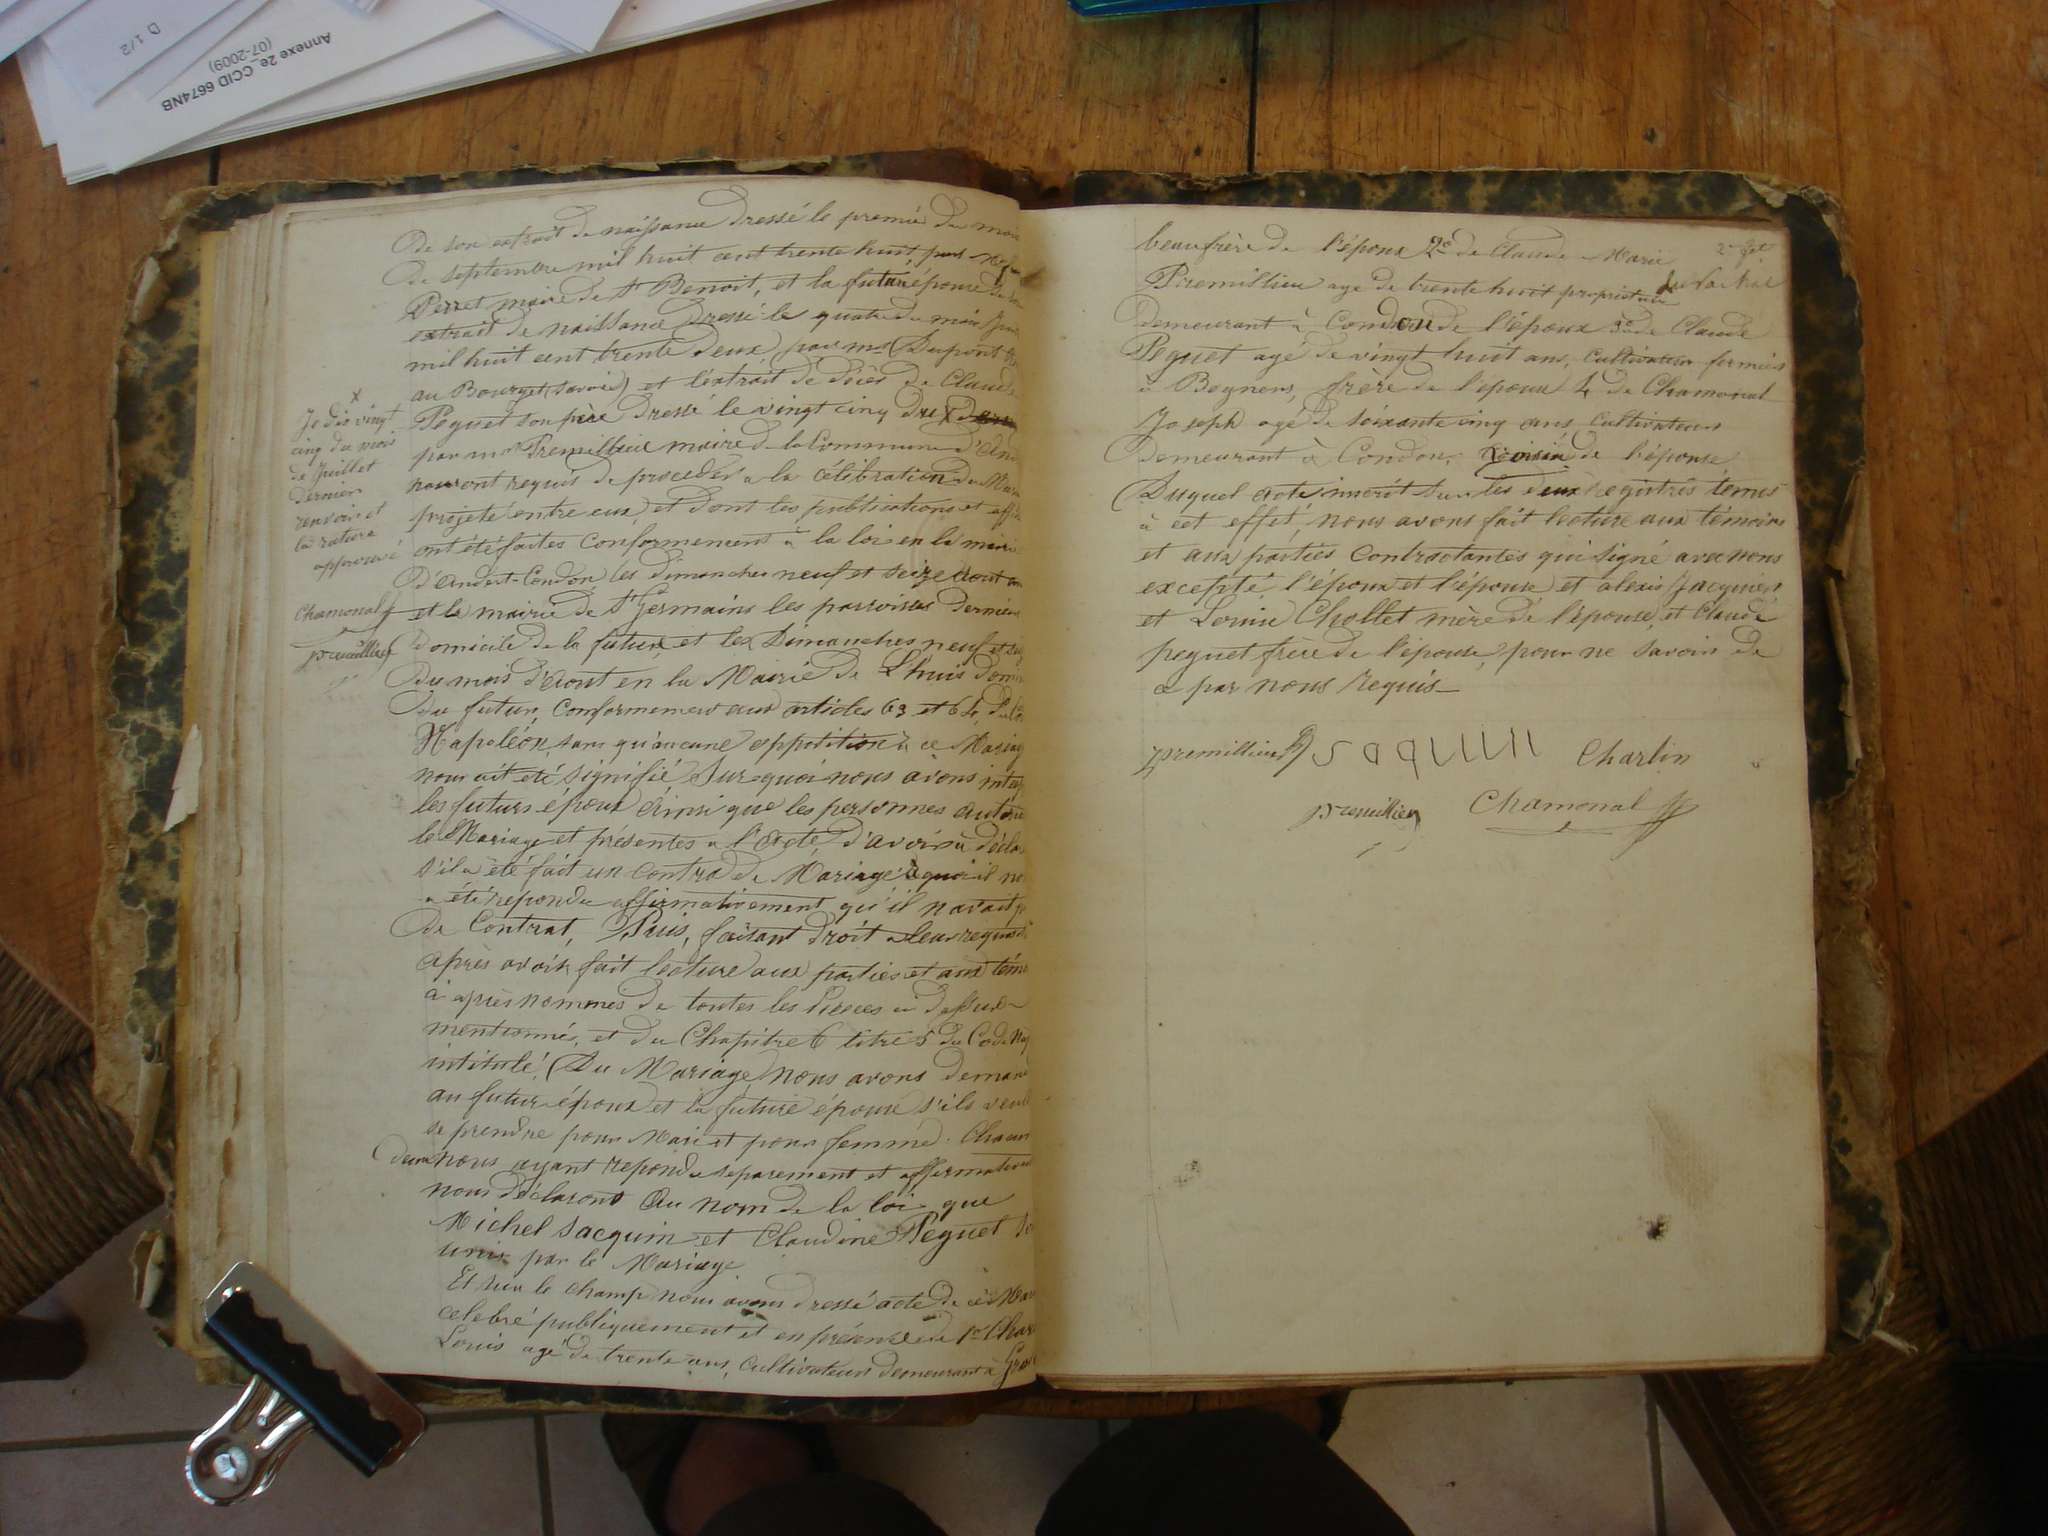 D 1/2
Annexe 2e_CCID 6674NB
(07-2009)
De son extrait de naissance Dressé le premier du mois
de septembre mil huit cent trente huit, par
Perret maire de St Benoit, et la future épouse de son
extrait de naissance Dressé le quatre du mois
mil huit cent trente deux, par mr Dupont
au Bourget (Savoie) et l'extrait de décès de Claude
Peguet son père Dressé le vingt cinq
par mr Premillieu maire de la Commune d'
nous ont requis de proceder a la célébration du
projeté entre eux, et dont les publications et
ont été faites conformement à la loi en la mairie
d'andert-Condon les dimanches neuf et seize aout
et la mairie de St Germains les parroisses dernier
domicile de la future, et les Dimanches neuf et
du mois d'aout en la Mairie de L'huis
du futur, conformement aux articles 63 et 64, du
Napoléon, sans qu'aucune opposition à ce Mariage
nous ait été signifié. Sur quoi nous avons
les futurs époux Ainsi que les personnes
le Mariage et présentes a l'acte, d'avoir à
s'il a été fait un contra de Mariage à quoi il
a été repondu affirmativement qu'il n'avait
de Contrat, Puis, faisant droit a leur
après avoir fait lecture aux parties et aux
ci après nommés de toutes les Pieces ci dessus
mentionnés, et du Chapitre 6 titre 5 du Code
intitulé, (Du Mariage) nous avons
au futur époux et la future épouse s'ils
se prendre pour Mari et pour femme. Chacun
deux nous ayant repondu separement et
nous déclarons Au nom de la loi que
Michel Jacquin et Claudine Peguet
unis par le Mariage
Et sur le champ nous avons dressé acte de ce
celebré publiquement et en présence de 1er
Louis agé de trente ans, cultivateur demeurant à
x
Je dis vingt
cinq du mois
de Juillet
dernier
renvoi et
la rature
approuvé
Chamonal
premillieu
beaufrère de l'époux 2e de Claude Marie
Premillieu agé de trente huit propriétaire
demeurant à Condon de l'époux 3e de Claude
Peguet agé de vingt huit ans, cultivateur fermier
à Beynens, frère de l'épouse 4 de Chamonal
Joseph agé de soixante cinq ans cultivateur
demeurant à Condon, voisin de l'épouse
Duquel acte inscrit sur les deux registres tenus
à cet effet, nous avons fait lecture aux témoins
et aux parties contractantes qui signé avec nous
excepté, l'époux et l'épouse et alexis Jacquin
et Louise Chollet mère de l'épouse, et Claude
peguet frère de l'épouse, pour ne savoir de
ce par nous requis
premillieu Jaquin Charlin
premillieu Chamonal